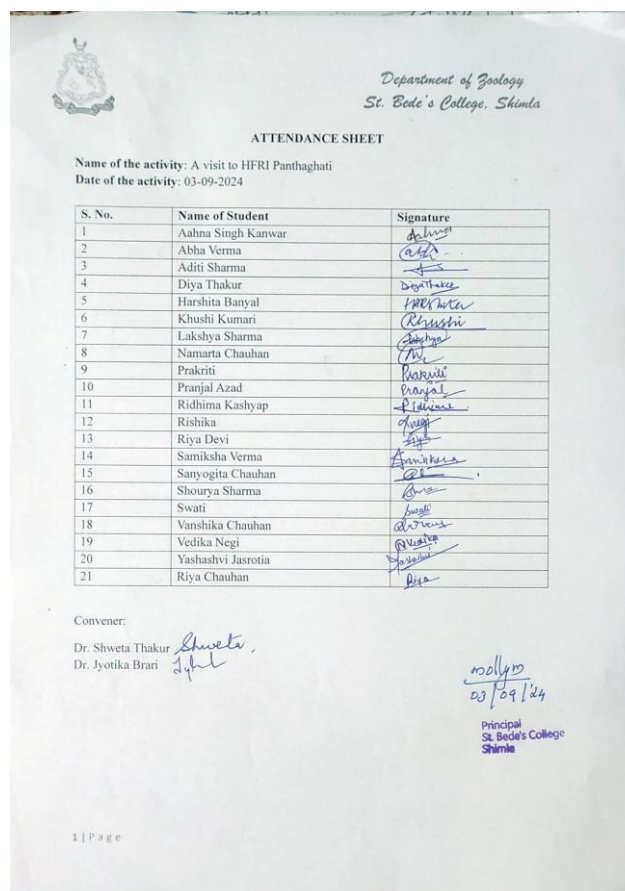 Department of Zoology
St. Bede's College, Shimla
ATTENDANCE SHEET
Name of the activity: A visit to HFRI Panthaghati
Date of the activity: 03-09-2024
S. No. Name of Student Signature
1 Aahna Singh Kanwar
2 Abha Verma
3 Aditi Sharma
4 Diya Thakur DiyaThakur
5 Harshita Banyal HARShita
6 Khushi Kumari Khushi
7 Lakshya Sharma Lakshya
8 Namarta Chauhan
9 Prakriti Prakriti
10 Pranjal Azad Pranjal
11 Ridhima Kashyap Ridhima
12 Rishika
13 Riya Devi
14 Samiksha Verma
15 Sanyogita Chauhan
16 Shourya Sharma
17 Swati Swati
18 Vanshika Chauhan
19 Vedika Negi Vedika
20 Yashashvi Jasrotia Yashashvi
21 Riya Chauhan Riya
Convener:
Dr. Shweta Thakur Shweta
Dr. Jyotika Brari
mollym
03/09/24
Principal
St. Bede's College
Shimla
1 | Page